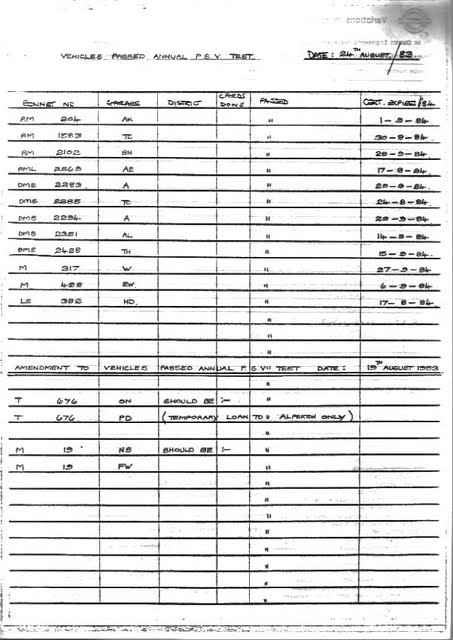 Variations
VEHICLES PASSED ANNUAL P.S.V. TEST. DATE: 24TH AUGUST/83.
BONNET NO GARAGE DISTRICT CARDS DONE PASSED CERT. EXPIRES/84
RM 204 AK " 1-9-84
RM 1583 TC " 30-8-84
RM 2102 BN " 28-9-84
RML 2569 AE " 17-8-84
DMS 2283 A " 29-9-84
DMS 2285 TC " 24-8-84
DMS 2294 A " 29-9-84
DMS 2351 AL " 14-9-84
DMS 2428 TH " 15-9-84
M 317 W " 27-9-84
M 488 EW. " 6-9-84
LS 382 HD. " 17-8-84
"
"
"
AMENDMENT TO VEHICLES PASSED ANNUAL P.S.V. TEST DATE: 19TH AUGUST 1983
"
T 676 ON SHOULD BE :-
T 676 PD (TEMPORARY LOAN TO ALPERTON ONLY)
"
M 19 NS SHOULD BE :- "
M 19 FW "
"
"
"
"
"
"
"
"